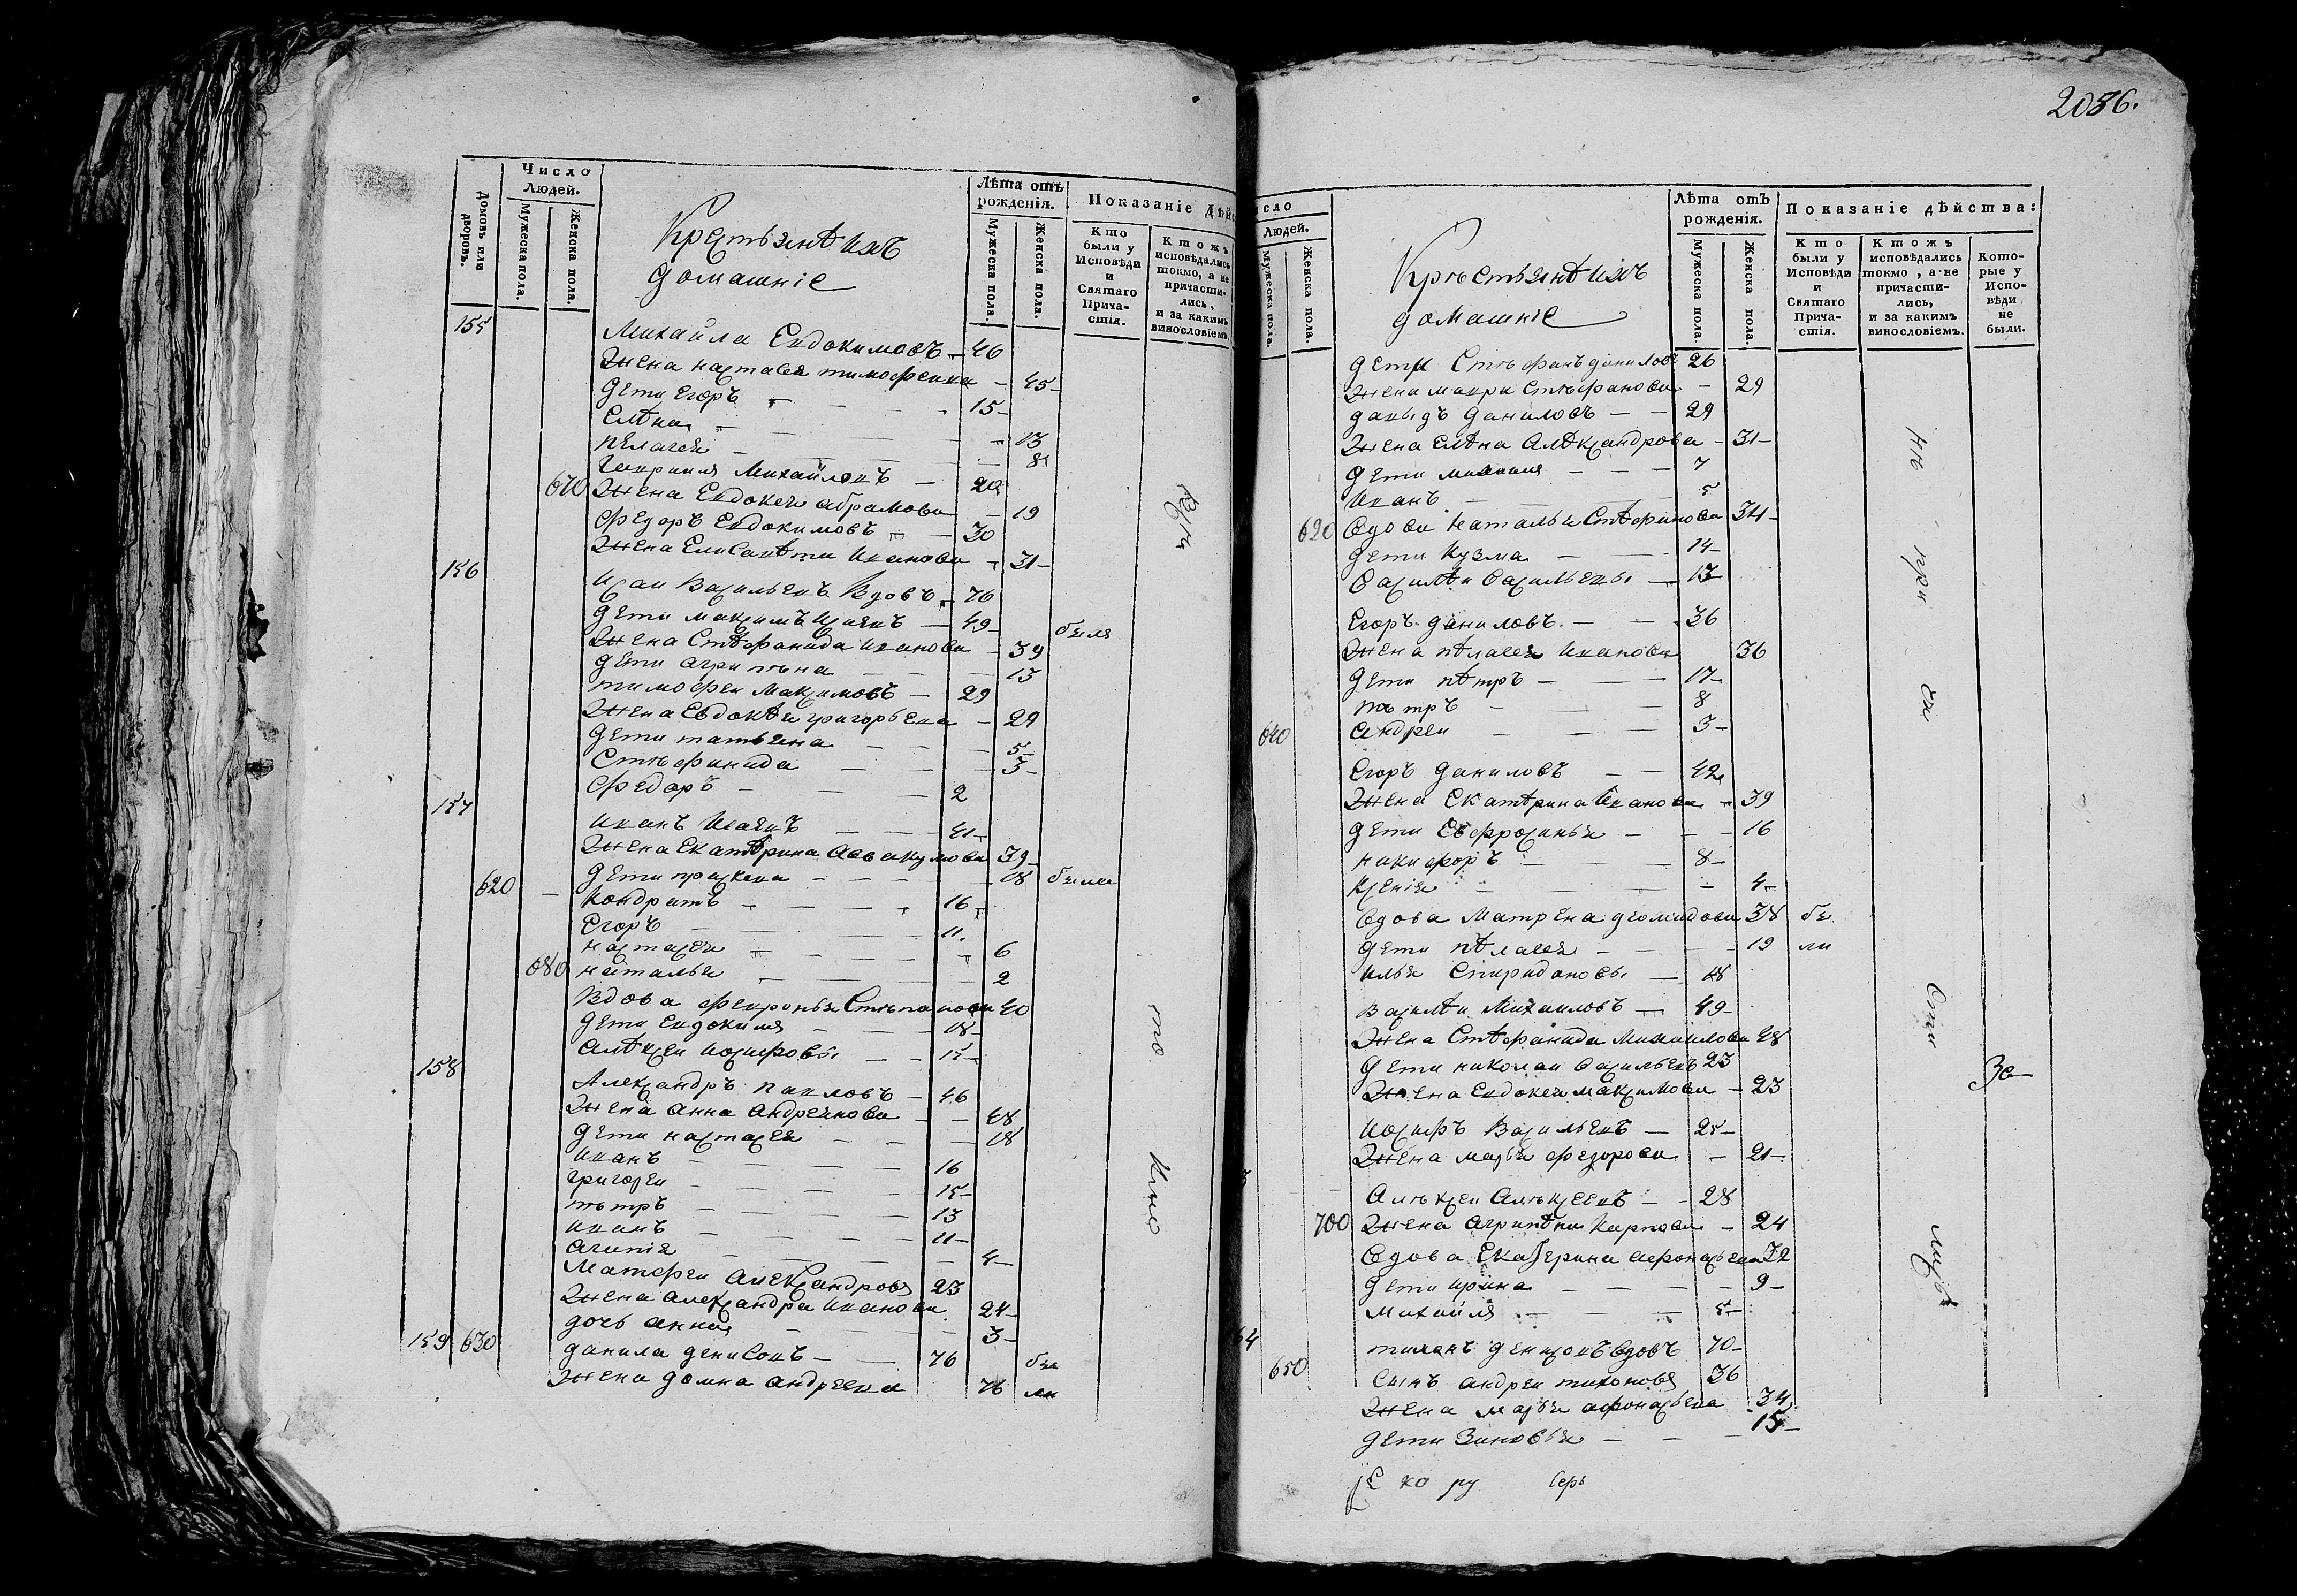 2086.
Число Людей.
Домовъ или дворовъ.
Мужеска пола.
Женска пола.
Крестьянѣ ихъ
домашніе
Лѣта отъ рожденія.
Мужеска пола.
Женска пола.
Показаніе Дѣйс
Кто были у Исповѣди и Святаго Причастія.
Ктожъ исповѣдались токмо, а не причастились, и за какимъ винословіемъ.
155 Михайла Евдокимовъ 46
Жена настасея тимофеива 45
Дети Егоръ 15
Елѣна 13
пелагея 8
Гаврила Михайловъ 20
670 Жена Евдокея абрамова 19
Федоръ Евдокимовъ 30
Жена Елисавѣта Иванова 31
156 Исаи Васильевъ Вдовъ 76
Дети максимъ Исаевъ 49
былъ
Жена Стѣфанида иванова 39
Дети агрипена 13
тимофеи Максимовъ 29
Жена Евдокѣя григорьева 29
Дети татьяна 5
Стефанида 3
Федоръ 2
157 Иванъ Исаевъ 41
Жена Екатѣрина Аввакумова 39
Дети прасковя 18 была
620 Кондратъ 16
Егоръ 11
настасея 6
680 наталья 2
Вдова февронья Степанова 40
Дети Евдокимъ 18
Алѣксеи иосифовы 15
158 Александръ павловъ 46
Жена анна андреянова 48
Дети настасея 18
иванъ 16
григореи 15
петръ 13
иванъ 11
агапія 4
Матфеи александровъ 23
Жена александра иванова 24
дочь анна 3
159 630 данила денисовъ 76 бы
Жена домна андреева 76 ли
Вси
то
кмо
исло
Людей.
Мужеска пола.
Женска пола.
Крестьянѣ ихъ
домашніе
Лѣта отъ рожденія.
Мужеска пола.
Женска пола.
Показаніе дѣйства:
Кто были у Исповѣди и Святаго Причастія.
Ктожъ исповѣдались токмо, а не причастились, и за какимъ винословіемъ.
Которые у Исповѣди не были.
дети Стефанъ даниловъ 26
Жена мавра Стефанова 29
давыдъ Даниловъ 29
Жена Елѣна Алѣксандрова 31
Дети михаила 7
Иванъ 5
620 Вдова Наталья Стѣфанова 34
Дети Кузма 14
Василѣи Васильевы 13
Егоръ даниловъ 36
Жена пѣлагея Иванова 36
Дети пѣтръ 17
петръ 8
640 андреи 3
Егоръ даниловъ 42
Жена Екатѣрина Иванова 39
Дети Евфросинья 16
никифоръ 8
Ксенія 4
Вдова Матрена деомидова 38 бы
Дети пѣлагея 19 ли
илья Спиридоновы 18
Василѣи Михаиловъ 49
Жена Стѣфанида Михаилова 48
Дети николаи Васильевъ 23
Жена Евдокея максимова 23
Иосифъ Васильевъ 25
Жена марья федорова 21
Алексеи Алексеевъ 28
700 Жена агрипѣна Карпова 24
Вдова Екатерина афонасьева 32
Дети ирина 9
михаила 5
64 тиханъ денисовъ вдовъ 70
650 Сынъ андреи тихоновъ 36
Жена марья афонасьева 34
Дети Зиновья 15
не
при
ча
сти
лись
За
ко ру